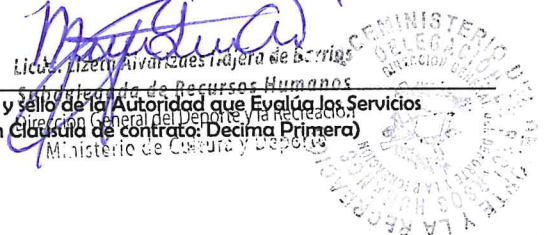 Licda. Lizeth Alvarizaes Nájera de Barrios
Subdelegada de Recursos Humanos
y sello de la Autoridad que Evalúa los Servicios
Dirección General del Deporte y la Recreación
n Clausula de contrato: Decima Primera)
Ministerio de Cultura y Deportes
VICEMINISTERIO DEL DEPORTE Y LA RECREACIÓN
DELEGACIÓN
DIRECCIÓN GENERAL
RECURSOS HUMANOS